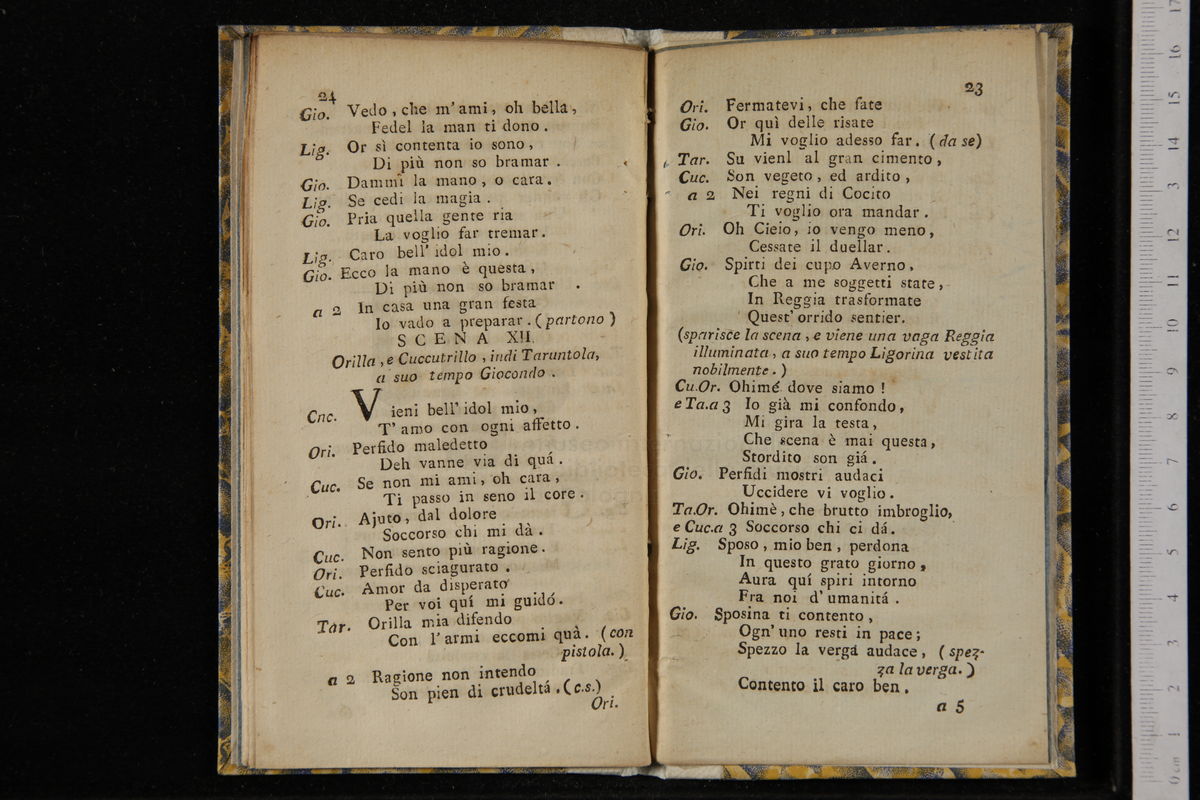 24
Gio. Vedo, che m' ami, oh bella,
Fedel la man ti dono.
Lig. Or sì contenta io sono,
Di più non so bramar.
Gio. Dammi la mano, o cara.
Lig. Se cedi la magia.
Gio. Pria quella gente ria
La voglio far tremar.
Lig. Caro bell' idol mio.
Gio. Ecco la mano è questa,
Di più non so bramar.
a 2 In casa una gran festa
Io vado a preparar. (partono)
SCENA XII.
Orilla, e Cuccutrillo, indi Taruntola,
a suo tempo Giocondo.
Cnc. Vieni bell' idol mio,
T' amo con ogni affetto.
Ori. Perfido maledetto
Deh vanne via di quá.
Cuc. Se non mi ami, oh cara,
Ti passo in seno il core.
Ori. Ajuto, dal dolore
Soccorso chi mi dà.
Cuc. Non sento più ragione.
Ori. Perfido sciagurato.
Cuc. Amor da disperato
Per voi quí mi guidó.
Tar. Orilla mia difendo
Con l' armi eccomi quà. (con
pistola.)
a 2 Ragione non intendo
Son pien di crudeltá. (c.s.)
Ori.
23
Ori. Fermatevi, che fate
Gio. Or quì delle risate
Mi voglio adesso far. (da se)
Tar. Su vienl al gran cimento,
Cuc. Son vegeto, ed ardito,
a 2 Nei regni di Cocito
Ti voglio ora mandar.
Ori. Oh Cieio, io vengo meno,
Cessate il duellar.
Gio. Spirti dei cupo Averno,
Che a me soggetti state,
In Reggia trasformate
Quest' orrido sentier.
(sparisce la scena, e viene una vaga Reggia
illuminata, a suo tempo Ligorina vestita
nobilmente.)
Cu.Or. Ohimé dove siamo!
e Ta.a 3 Io già mi confondo,
Mi gira la testa,
Che scena è mai questa,
Stordito son giá.
Gio. Perfidi mostri audaci
Uccidere vi voglio.
Ta.Or. Ohimè, che brutto imbroglio,
e Cuc.a 3 Soccorso chi ci dá.
Lig. Sposo, mio ben, perdona
In questo grato giorno,
Aura quí spiri intorno
Fra noi d' umanitá.
Gio. Sposina ti contento,
Ogn' uno resti in pace;
Spezzo la verga audace, (spez-
za la verga.)
Contento il caro ben.
a 5